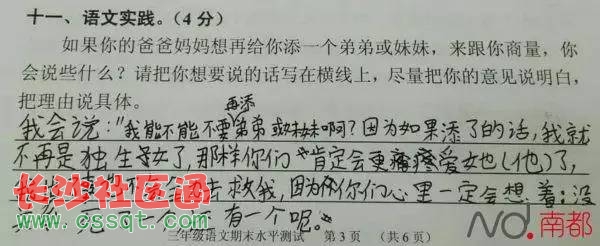 十一、语文实践。(4分)
如果你的爸爸妈妈想再给你添一个弟弟或妹妹，来跟你商量，你
会说些什么？请把你想要说的话写在横线上，尽量把你的意见说明白，
把理由说具体。
再添
我会说："我能不能不要弟弟或妹妹啊？因为如果添了的话，我就
不再是独生子女了，那样你们肯定会更疼爱她(他)了，
去救我，因为你们心里一定会想着：没
有一个呢。"
长沙社区通
www.cssqt.com
三年级语文期末水平测试 第3页 (共6页)
nd.南都